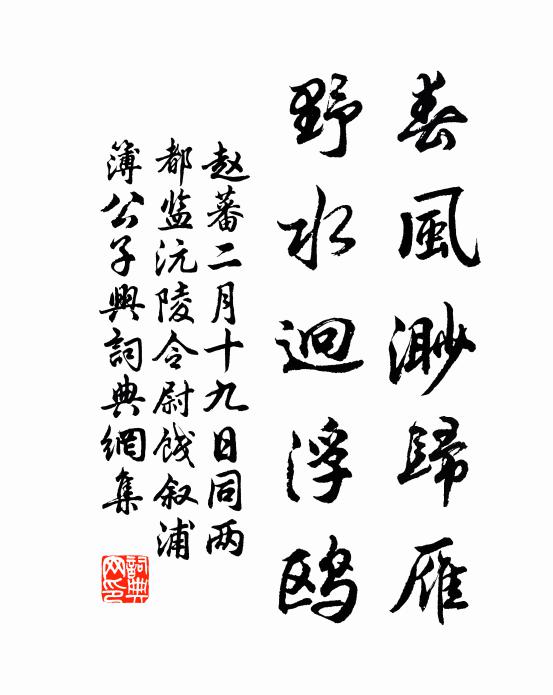 春風渺歸雁
野水迥浮鸥
赵蕃二月十九日同两
都监沅陵令尉饯叙浦
簿公子興詞典網集
詞典
网印